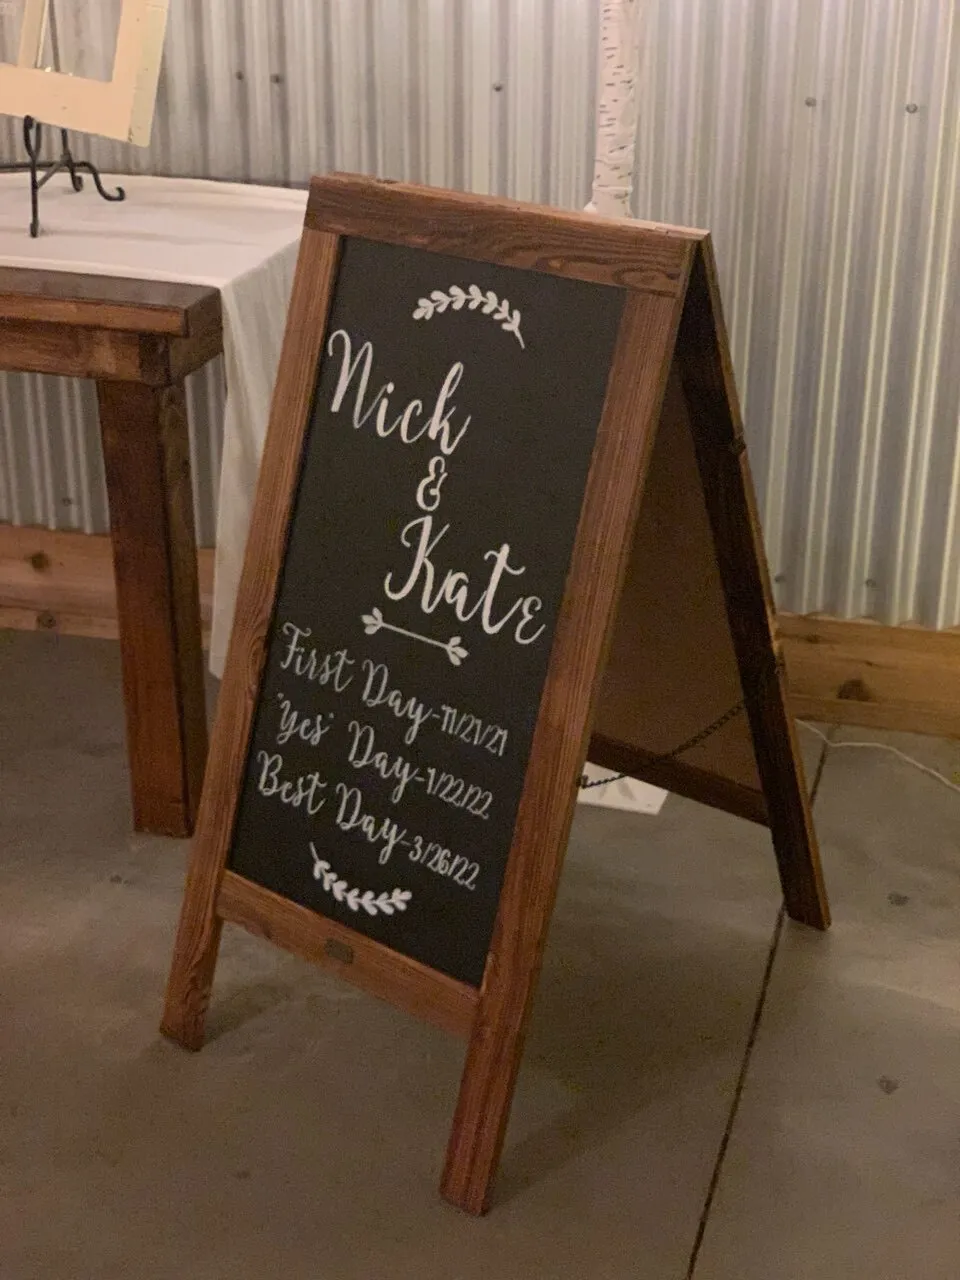 Nick
&
Kate
First Day-11/21/21
"Yes" Day-1/22/22
Best Day-3/26/22